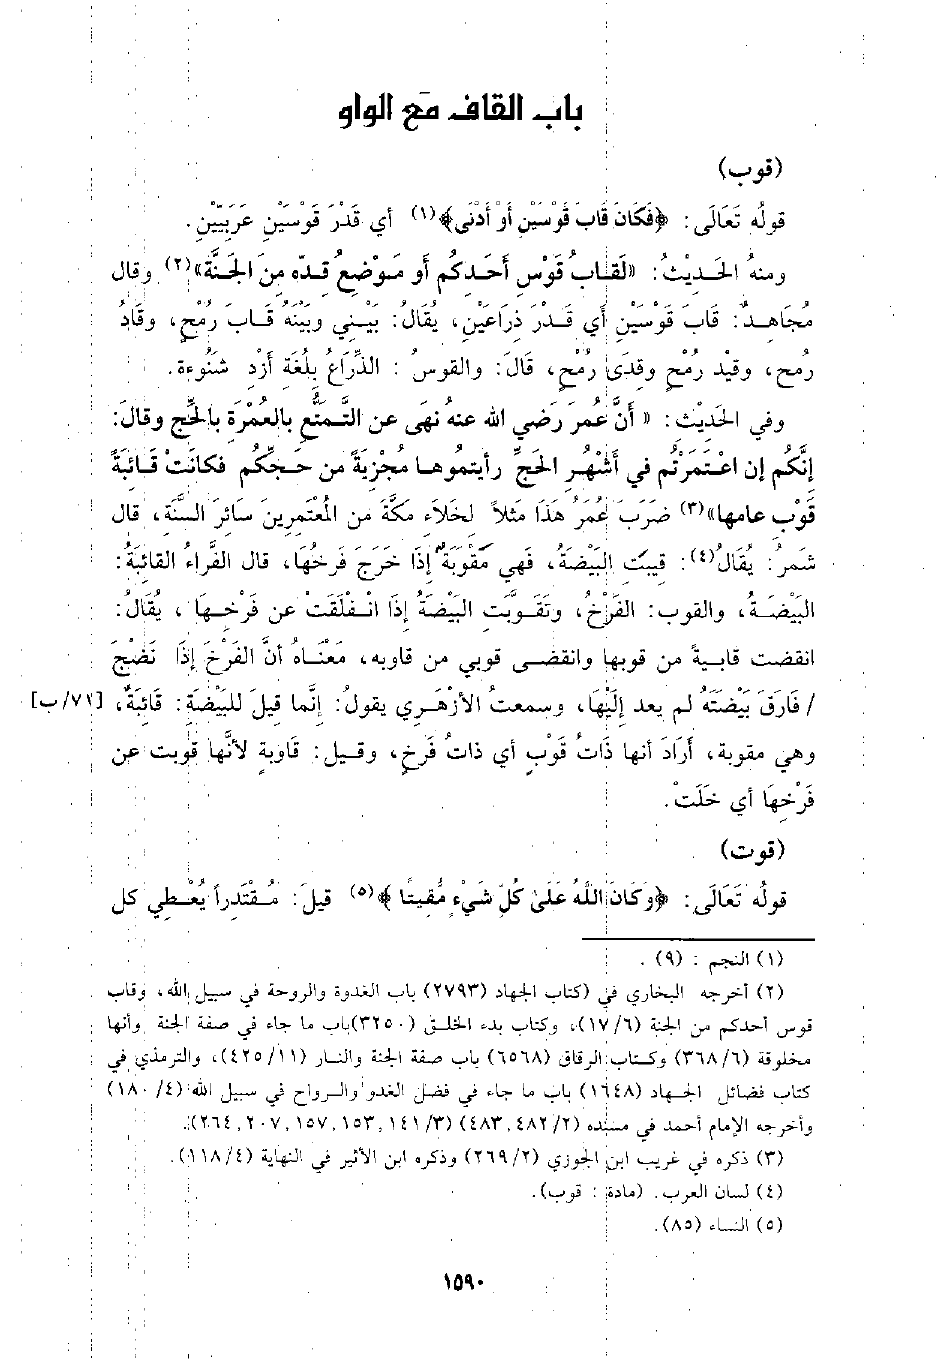 باب القاف مع الواو
(قوب)
قولُه تَعَالَى: ﴿فَكَانَ قَابَ قَوْسَيْنِ أَوْ أَدْنَى﴾(١) أي قَدْرَ قَوْسَيْنِ عَرَبَيَّيْنِ.
ومنهُ الحَديثُ: «لَقَابُ قَوْسِ أَحَدكُم أو مَوْضعُ قدّه منَ الجَنَّة»(٢) وقال
مُجَاهدٌ: قَابَ قَوْسَيْنِ أي قَدْرَ ذرَاعَيْنِ، يقَالُ: بَيْني وبَيْنَهُ قَابَ رُمْحٍ، وقَادُ
رُمح، وقيْد رُمْحٍ وقدَى رُمْحٍ، قَالَ: والقوسُ: الذِّرَاعُ بِلُغَة أزْد شَنُوءة.
وفي الحَديْث: « أنَّ عُمرَ رَضي الله عنهُ نهَى عن التَّمتُّع بالعُمْرَة بالحَّج وقالَ:
إنَّكُم إن اعْتَمَرْتُم في أشْهُر الحَجِّ رأيتموها مُجْزيَةً من حَجكُم فكانَتْ قَائبَةً
قَوْب عامها»(٣) ضَرَبَ عُمَرُ هَذَا مثلاً لخَلاَء مكَّةَ من المُعْتَمرين سَائرَ السَّنَة، قال
شَمرُ: يُقَالُ(٤): قيبَت البَيْضَةُ، فَهي مَقُوبَةٌ إذَا خَرَجَ فَرخُهَا، قال الفَّراءُ القائبَةُ:
البَيْضَةُ، والقوب: الفَرْخُ، وتَقَوَّبَت البَيْضَةُ إذَا انْفَلَقَتْ عن فَرْخهَا ، يُقَالُ:
انقضت قابيةً من قوبها وانقضى قوبي من قاوبه، مَعْنَاهُ أنَّ الفَرْخَ إذَا نَضْجَ
/ فَارَقَ بَيْضَتَهُ لم يعد إلَيْهَا، وسمعتُ الأزْهَري يقولُ: إنَّما قيلَ للبَيْضَة: قَائبَةٌ، [٧١/ب]
وهي مقوبة، أرَادَ أنها ذَاتُ قَوْبِ أي ذاتُ فَرخٍ، وقيل: قَاوبة لأنَّها قوبت عن
فَرْخهَا أي خَلَتْ.
(قوت)
قولُه تَعَالَى: ﴿وَكَانَ اللَّهُ عَلَىٰ كُلِّ شَيْءٍ مُّقيتًا ﴾(٥) قيلَ: مُقْتَدراً يُعْطي كل
(١) النجم : (٩) .
(٢) أخرجه البخاري في (كتاب الجهاد (٢٧٩٣) باب الغدوة والروحة في سبيل الله، وقاب
قوس أحدكم من الجنة (١٧/٦)، وكتاب بدء الخلق (٣٢٥٠)باب ما جاء في صفة الجنة وأنها
مخلوقة (٣٦٨/٦) وكتاب الرقاق (٦٥٦٨) باب صفة الجنة والنار (٤٢٥/١١)، والترمذي في
كتاب فضائل الجهاد (١٦٤٨) باب ما جاء في فضل الغدو والرواح في سبيل الله (١٨٠/٤)
وأخرجه الإمام أحمد في مسنده (٤٨٣,٤٨٢/٢) (٢٦٤,٢٠٧,١٥٧,١٥٣,١٤١/٣).
(٣) ذكره في غريب ابن الجوزي (٢٦٩/٢) وذكره ابن الأثير في النهاية (١١٨/٤).
(٤) لسان العرب. (مادة : قوب).
(٥) النساء (٨٥).
١٥٩٠